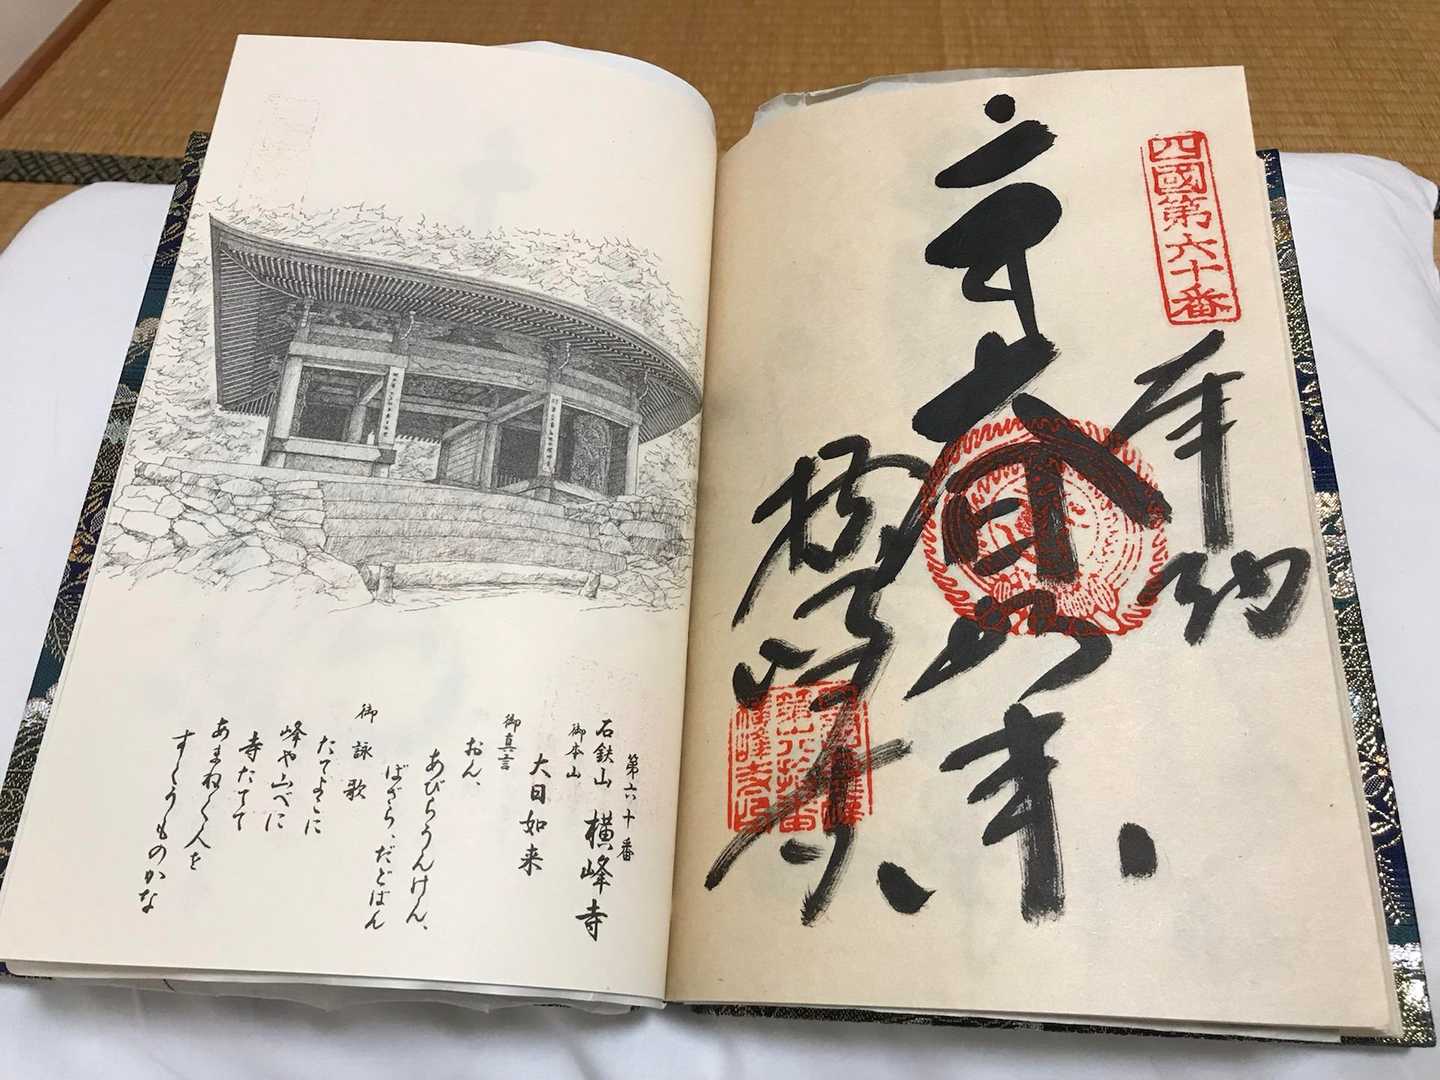 四國第六十番
奉納
大日如来
横峰寺
第六拾番
横峰寺印
第六十番
石鈇山 横峰寺
御本山
大日如来
御真言
おん、
あびらうんけん、
ばざら、だどばん
御詠歌
たてよこに
峰や山べに
寺たてて
あまねく人を
すくうものかな